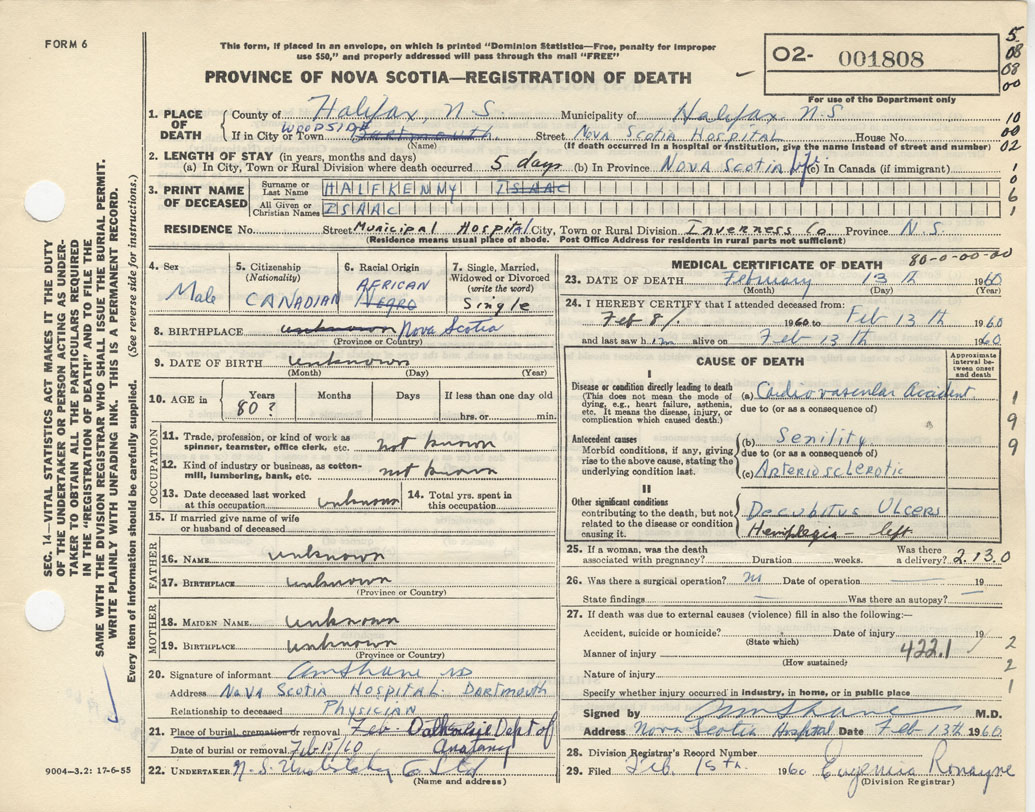 FORM 6
This form, if placed in an envelope, on which is printed "Dominion Statistics—Free, penalty for improper
use $50," and properly addressed will pass through the mail "FREE"
PROVINCE OF NOVA SCOTIA—REGISTRATION OF DEATH
O2- 001808
For use of the Department only
5
08
08
00
10
00
02
1
0
6
1
1. PLACE OF DEATH
County of Halifax, N.S. Municipality of Halifax N.S
If in City or Town WOODSIDE Dartmouth Street Nova Scotia Hospital House No.
(Name) (If death occurred in a hospital or institution, give the name instead of street and number)
2. LENGTH OF STAY (in years, months and days)
(a) In City, Town or Rural Division where death occurred 5 days (b) In Province Nova Scotia life (c) In Canada (if immigrant)
3. PRINT NAME OF DECEASED
Surname or Last Name HALFKENNY ISAAC
All Given or Christian Names ISAAC
RESIDENCE No. Street Municipal Hospital City, Town or Rural Division Inverness Co Province N.S.
(Residence means usual place of abode. Post Office Address for residents in rural parts not sufficient)
4. Sex
Male
5. Citizenship
(Nationality)
CANADIAN
6. Racial Origin
AFRICAN
Negro
7. Single, Married, Widowed or Divorced
(write the word)
Single
8. BIRTHPLACE unknown Nova Scotia
(Province or Country)
9. DATE OF BIRTH unknown
(Month) (Day) (Year)
10. AGE in
Years Months Days If less than one day old
80? hrs. or min.
OCCUPATION
11. Trade, profession, or kind of work as
spinner, teamster, office clerk, etc. not known
12. Kind of industry or business, as cotton-
mill, lumbering, bank, etc. not known
13. Date deceased last worked
at this occupation unknown
14. Total yrs. spent in
this occupation
15. If married give name of wife
or husband of deceased
FATHER
16. NAME unknown
17. BIRTHPLACE unknown
(Province or Country)
MOTHER
18. MAIDEN NAME unknown
19. BIRTHPLACE unknown
(Province or Country)
20. Signature of informant
Address Nova Scotia Hospital Dartmouth
Relationship to deceased Physician
21. Place of burial, cremation or removal Feb. Dalhousie Dept of
Anatomy
Date of burial or removal
22. UNDERTAKER
(Name and address)
MEDICAL CERTIFICATE OF DEATH 80-0-00-00
23. DATE OF DEATH February 13th 1960
(Month) (Day) (Year)
24. I HEREBY CERTIFY that I attended deceased from:
Feb 8/ 1960 to Feb 13th 1960
and last saw him alive on Feb 13th 1960
CAUSE OF DEATH
Approximate interval between onset and death
I
Disease or condition directly leading to death
(This does not mean the mode of
dying, e.g., heart failure, asthenia,
etc. It means the disease, injury, or
complication which caused death.)
(a) Cardiovascular Accident
due to (or as a consequence of)
Antecedent causes
Morbid conditions, if any, giving
rise to the above cause, stating the
underlying condition last.
(b) Senility
due to (or as a consequence of)
(c) Arteriosclerotic
II
Other significant conditions
contributing to the death, but not
related to the disease or condition
causing it.
Decubitus Ulcers
Hemiplegia - left
1
9
9
25. If a woman, was the death
associated with pregnancy? Duration weeks. Was there
a delivery? 2130
26. Was there a surgical operation? Date of operation 19
State findings Was there an autopsy?
27. If death was due to external causes (violence) fill in also the following:—
Accident, suicide or homicide? Date of injury 19
(State which)
Manner of injury 422.1
(How sustained)
Nature of injury
Specify whether injury occurred in industry, in home, or in public place
2
2
1
Signed by M.D.
Address Nova Scotia Hospital Date Feb 13th 1960
28. Division Registrar's Record Number
29. Filed Feb. 15th. 1960 Eugenia Ronayne
(Division Registrar)
SEC. 14—VITAL STATISTICS ACT MAKES IT THE DUTY
OF THE UNDERTAKER OR PERSON ACTING AS UNDER-
TAKER TO OBTAIN ALL THE PARTICULARS REQUIRED
IN THE "REGISTRATION OF DEATH" AND TO FILE THE
SAME WITH THE DIVISION REGISTRAR WHO SHALL ISSUE THE BURIAL PERMIT.
WRITE PLAINLY WITH UNFADING INK. THIS IS A PERMANENT RECORD.
Every item of information should be carefully supplied. (See reverse side for instructions.)
9004—3.2: 17-6-55